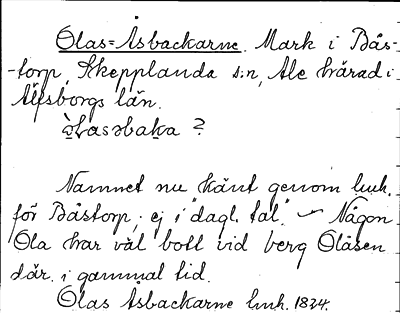 Olas=Åsbackarne. Mark i Bås-
-torp, Skepplanda s:n, Ale härad i
Älfsborgs län.
?
Namnet nu känt genom lmk.
för Båstorp; ej i "dagl. tal." — Någon
Ola har väl bott vid berg Olåsen
där. i gammal tid.
Olas Åsbackarne lmk. 1834.